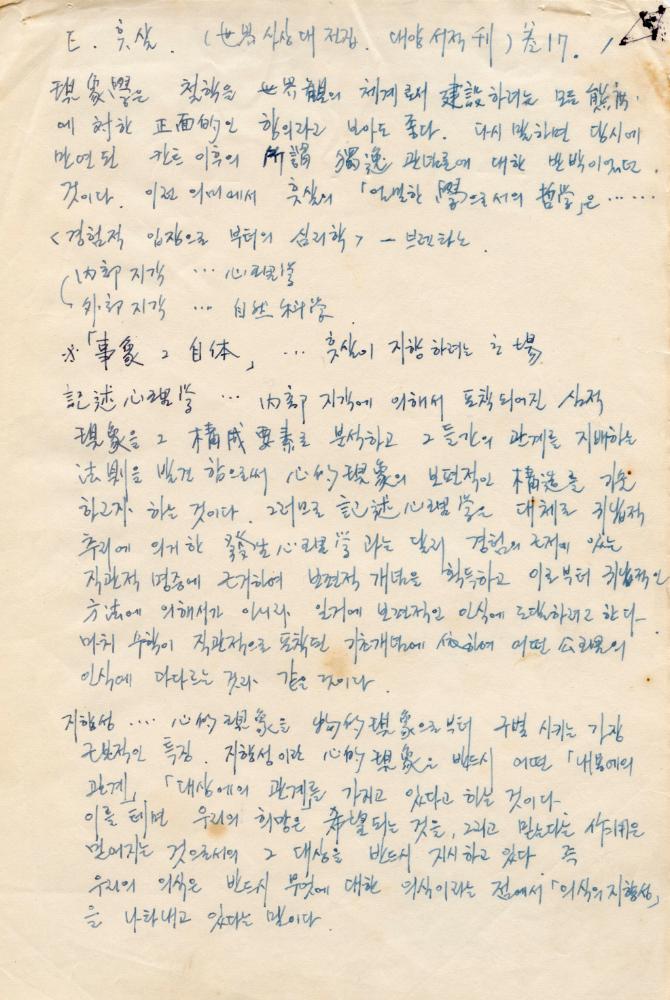 E. 훗설. (世界사상대전집. 대양서적刊) 卷17.
現象學은 철학을 世界觀의 체계로서 建設하려는 모든
에 対한 正面的인 항의라고 보아도 좋다. 다시 말하면 당시에
만연된 칸트 이후의 所謂 獨逸 관념론에 대한 반박이었던
것이다. 이런 의미에서 훗설의 「엄밀한 學으로서의 哲学」은 ……
<경험적 입장으로 부터의 심리학> — 브렌타노
內部 지각 … 心理学
外部 지각 … 自然科学
※「事象 그 自体」 … 훗설이 지향하려는 立場
記述心理学 … 內部 지각에 의해서 포착되어진 심적
現象을 그 構成要素로 분석하고 그들간의 관계를 지배하는
法則을 발견함으로써 心的 現象의 보편적인 構造를 기술
하고자 하는 것이다. 그러므로 記述心理学은 대체로 귀납적
추리에 의거한 發生心理学과는 달리 경험의 근저에 있는
직관적 명증에 근거하여 보편적 개념을 획득하고 이로부터 귀납적인
方法에 의해서가 아니라 일거에 보편적인 인식에 도달하려고 한다.
마치 수학이 직관적으로 포착된 기초개념에 依하여 어떤 公理의
인식에 다다르는 것과 같은 것이다.
지향성 …. 心的現象을 物的現象으로부터 구별 시키는 가장
근본적인 특징. 지향성이란 心的現象은 반드시 어떤 「내용에의
관계」, 「대상에의 관계」를 가지고 있다고 하는 것이다.
이를 테면 우리의 희망은 希望되는 것을, 그리고 믿는다는 作用은
믿어지는 것으로서의 그 대상을 반드시 지시하고 있다. 즉
우리의 의식은 반드시 무엇에 대한 의식이라는 점에서 「의식의 지향성」
을 나타내고 있다는 말이다.